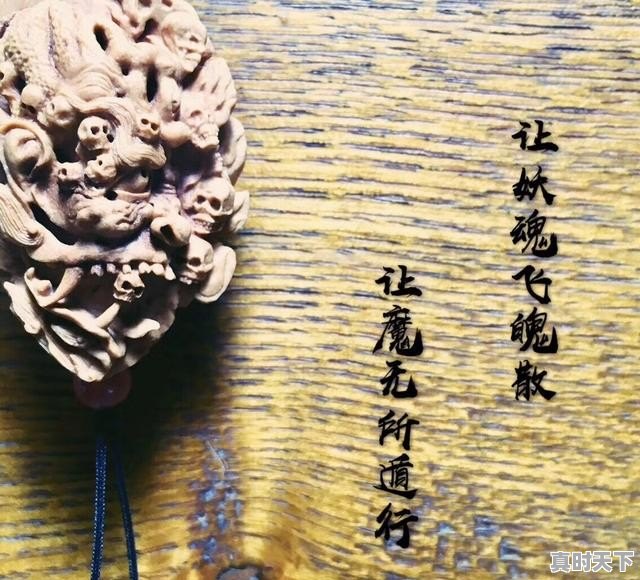 让妖魂飞魄散
让魔无所遁行
真时天下